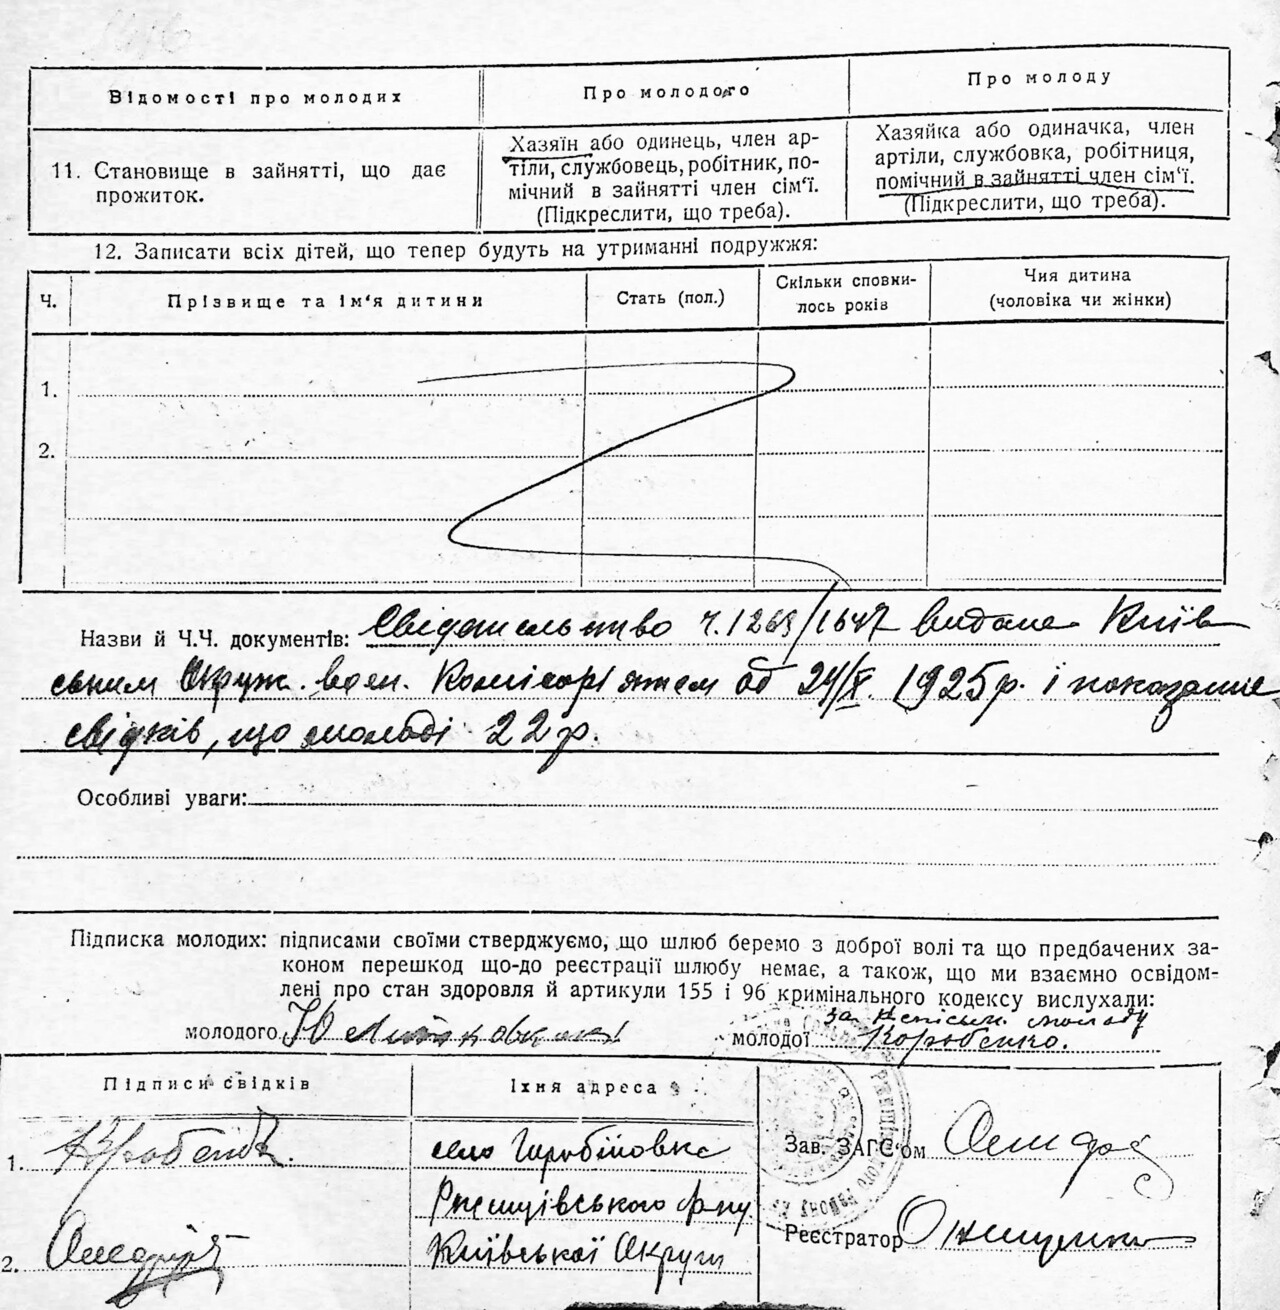 Відомості про молодих
Про молодого
Про молоду
11. Становище в зайнятті, що дає
прожиток.
Хазяїн або одинець, член ар-
тіли, службовець, робітник, по-
мічний в зайнятті член сім'ї.
(Підкреслити, що треба).
Хазяйка або одиначка, член
артіли, службовка, робітниця,
помічний в зайнятті член сім'ї.
(Підкреслити, що треба).
12. Записати всіх дітей, що тепер будуть на утриманні подружжя:
Ч.
Прізвище та ім'я дитини
Стать (пол.)
Скільки сповни-
лось років
Чия дитина
(чоловіка чи жінки)
1.
2.
Назви й Ч.Ч. документів: Свідетельство ч. 1269/1647 видане Київ
ським Окруж. воен. Комісаріятем од 24/X. 1925 р. і показание
свідків, що молоді 22 р.
Особливі уваги:
Підписка молодих: підписами своїми стверджуємо, що шлюб беремо з доброї волі та що предбачених за-
коном перешкод що-до реєстрації шлюбу немає, а також, що ми взаємно освідом-
лені про стан здоровля й артикули 155 і 96 кримінального кодексу вислухали:
за неписьм. молоду
молодого
молодої Коробенко.
Підписи свідків
Їхня адреса
1.
село
Ржищівського р-ну
2.
Київської Округи
Зав. ЗАГС'ом
Реєстратор